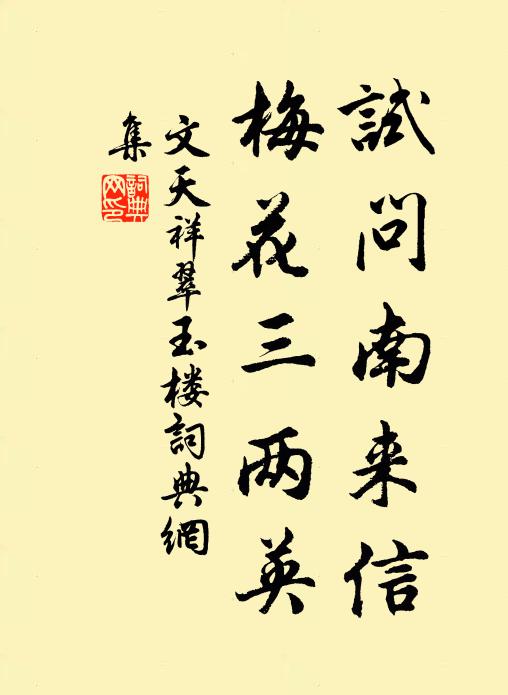 試问南来信
梅花三两英
文天祥翠玉楼詞典網
集
詞典网印